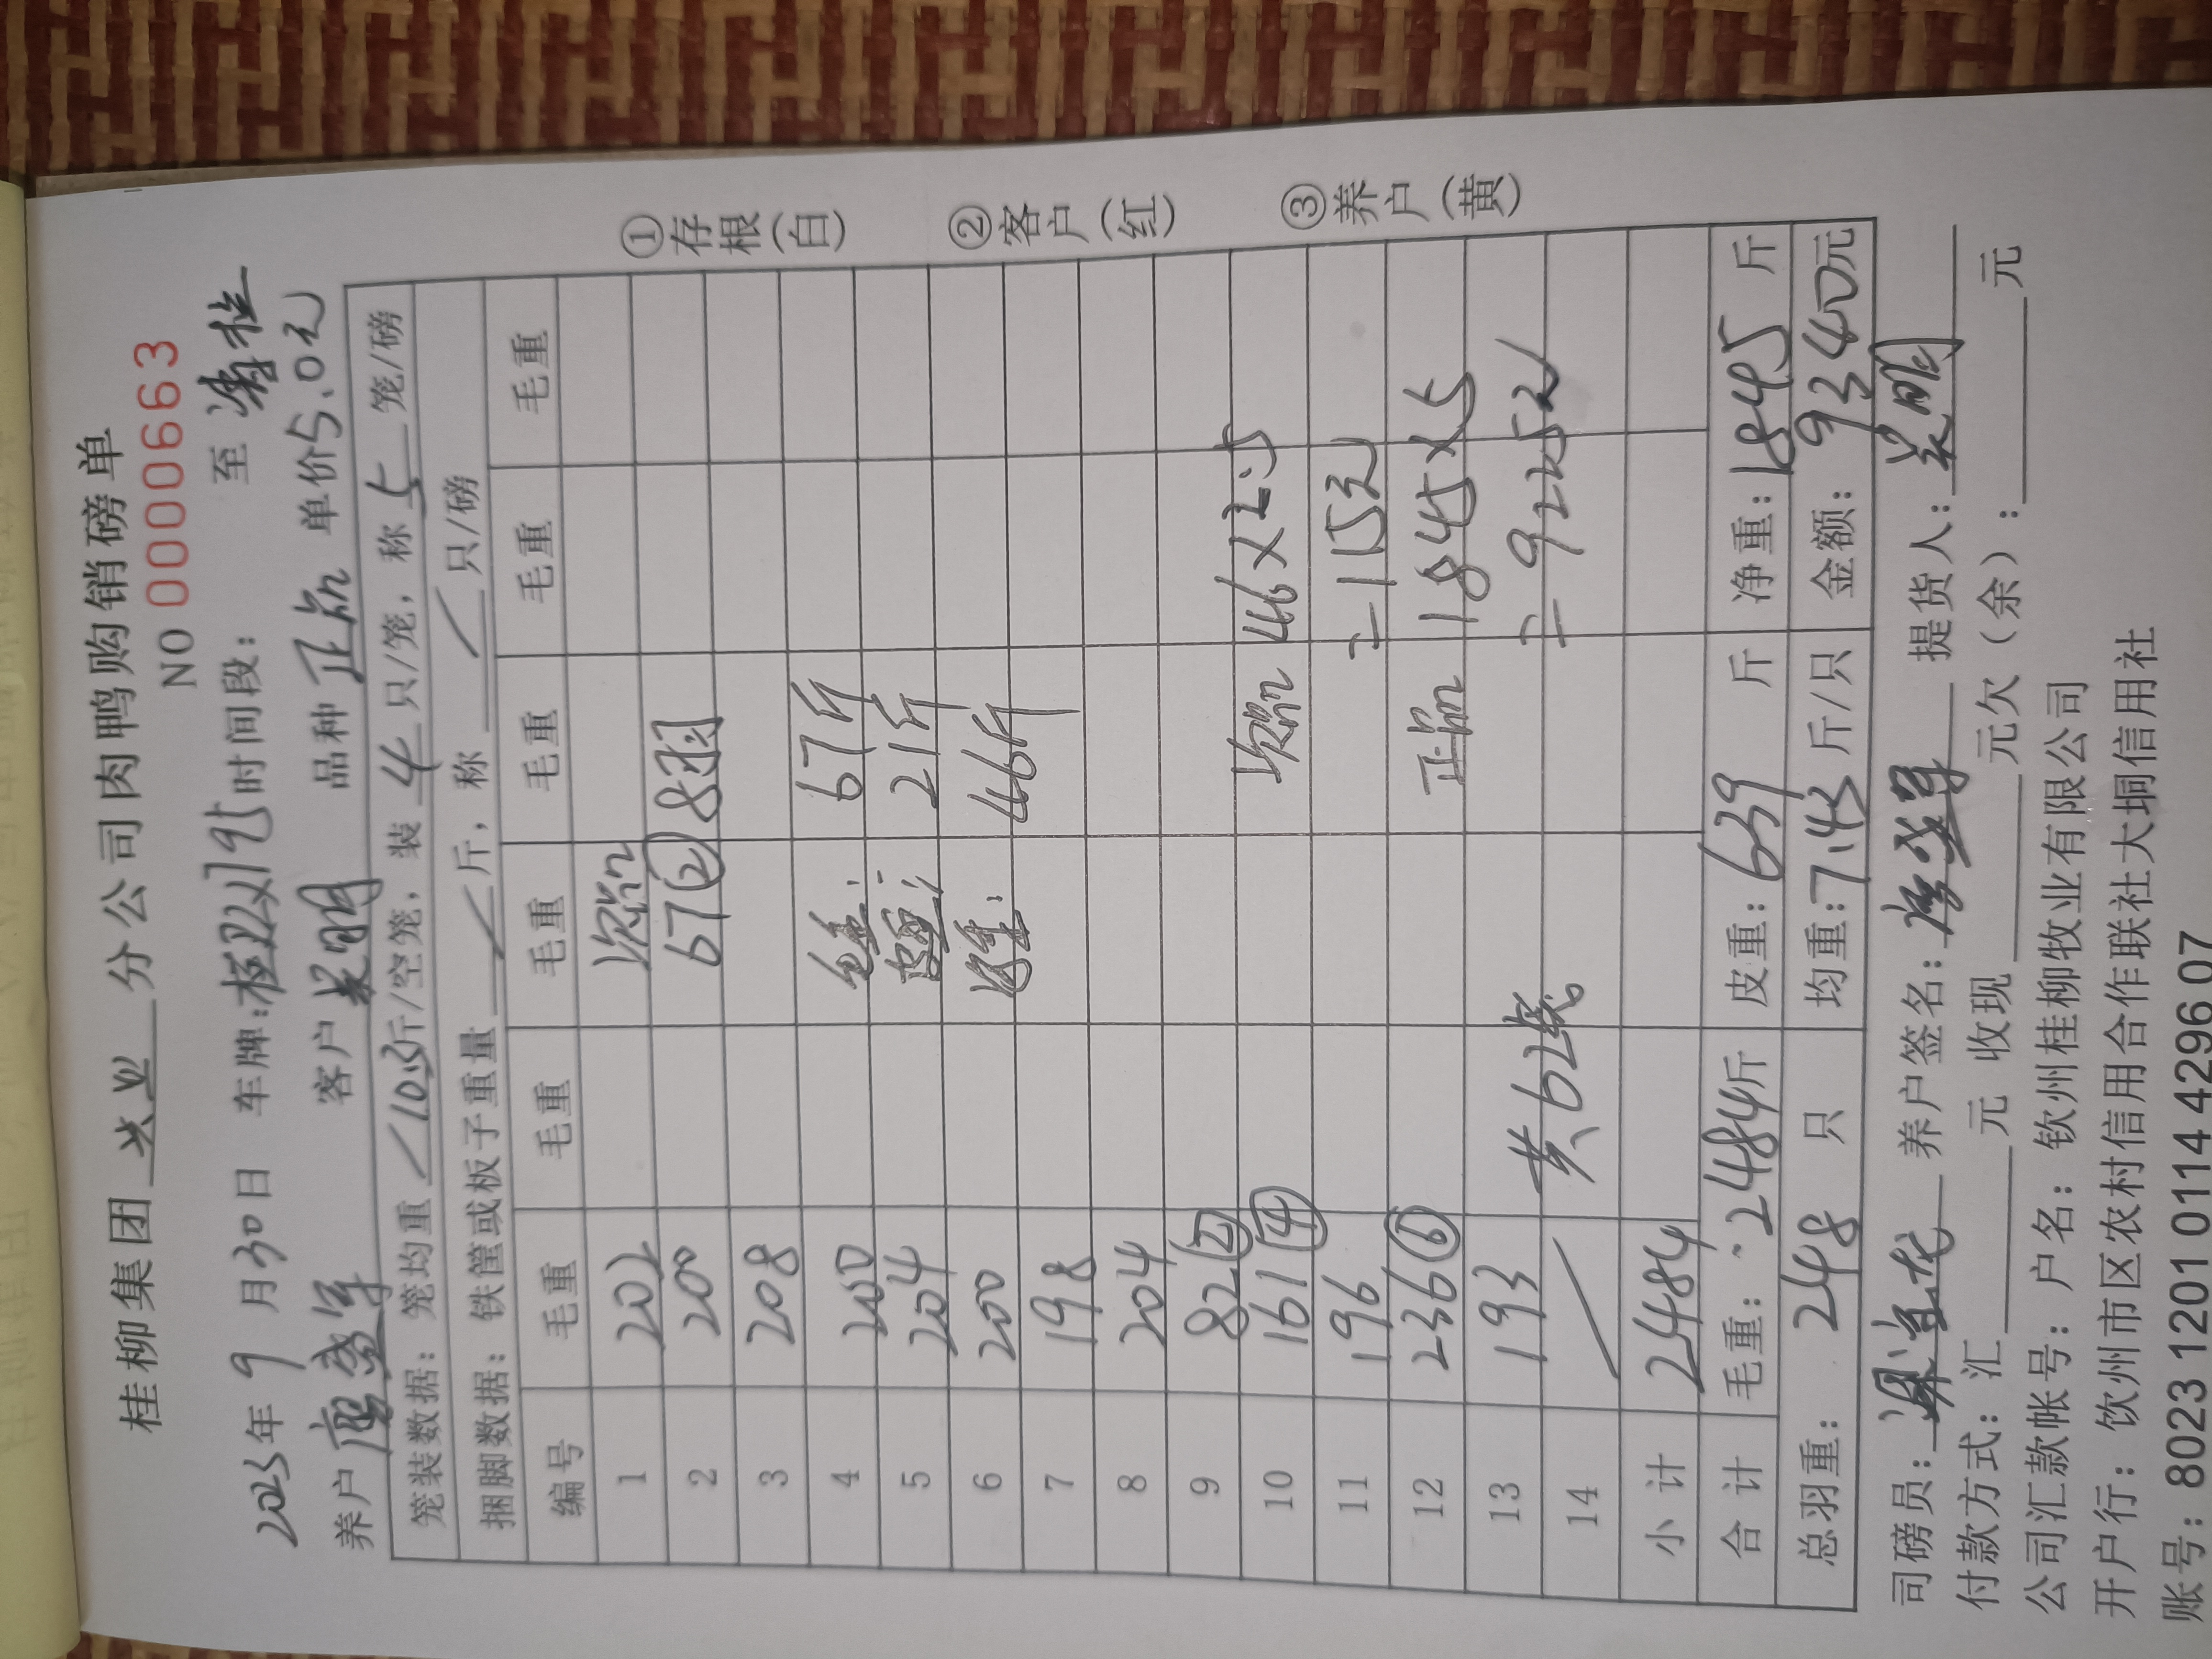 桂柳集团 兴业 分公司肉鸭购销磅单
NO 0000663
2023年 9 月30日 车牌: 时间段: 至
养户 客户 品种 正品 单价5.0元
笼装数据: 笼均重 10.3斤/空笼, 装 4 只/笼, 称 5 笼/磅
捆脚数据: 铁筐或板子重量 斤, 称 只/磅
编号 毛重 毛重 毛重 毛重 毛重 毛重
1 202 次品
2 200 67② 8羽
3 208
4 200 毛重: 67斤
5 204 皮重: 21斤
6 200 净重: 46斤
7 198
8 204
9 82②
10 161④ 次品 46×2.5
11 196 =115元
12 236⑥ 正品 1845×5
13 193 =9225元
14 共62笼。
小计 2484
合计 毛重: 2484斤 皮重: 639 斤 净重: 1845 斤
总羽重: 248 只 均重: 7.43 斤/只 金额: 9340元
司磅员: 养户签名: 提货人:
付款方式: 汇 元 收现 元欠(余): 元
公司汇款帐号: 户名: 钦州桂柳牧业有限公司
开户行: 钦州市区农村信用合作联社大垌信用社
账号: 8023 1201 0114 4296 07
①存根(白) ②客户(红) ③养户(黄)